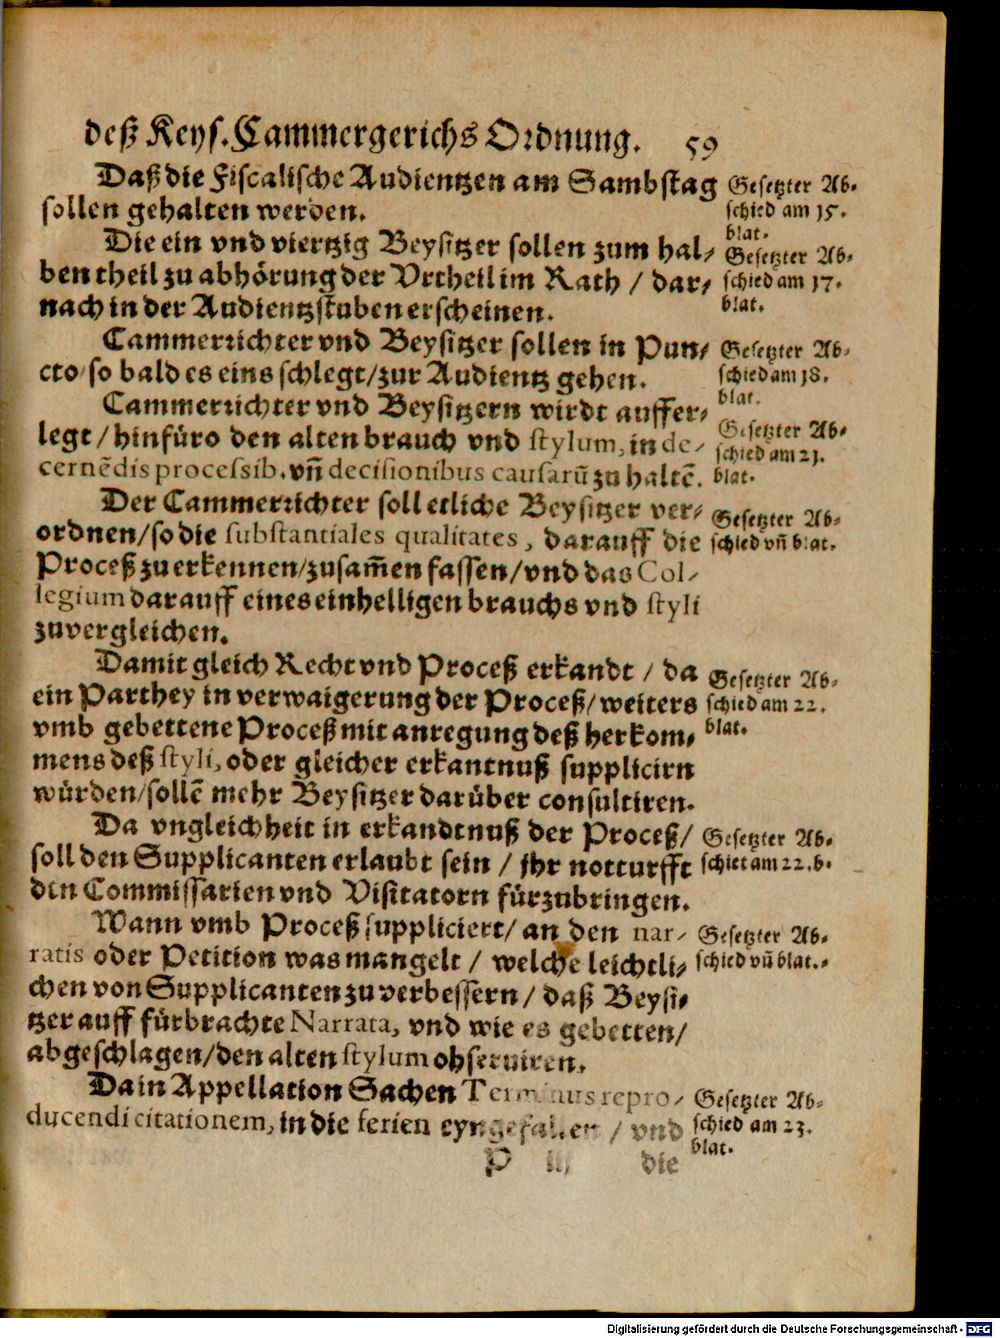 deß Keys. Cammergerichs Ordnung. 59
Daß die Fiscalische Audientzen am Sambstag
sollen gehalten werden.
Gesetzter Ab-
schied am 15.
blat.
Die ein vnd viertzig Beysitzer sollen zum hal-
ben theil zu abhörung der Vrtheil im Rath / dar-
nach in der Audientzstuben erscheinen.
Gesetzter Ab-
schied am 17.
blat.
Cammerrichter vnd Beysitzer sollen in Pun-
cto / so bald es eins schlegt / zur Audientz gehen.
Gesetzter Ab-
schied am 18.
blat.
Cammerrichter vnd Beysitzern wirdt auffer-
legt / hinfüro den alten brauch vnd stylum, in de-
cernēdis processib. vñ decisionibus causarū zu haltē.
Gesetzter Ab-
schied am 21.
blat.
Der Cammerrichter soll etliche Beysitzer ver-
ordnen / so die substantiales qualitates, darauff die
Proceß zu erkennen / zusam̃en fassen / vnd das Col-
legium darauff eines einhelligen brauchs vnd styli
zuvergleichen.
Gesetzter Ab-
schied vñ blat.
Damit gleich Recht vnd Proceß erkandt / da
ein Parthey in verwaigerung der Proceß / weiters
vmb gebettene Proceß mit anregung deß herkom-
mens deß styli, oder gleicher erkantnuß supplicirn
würden / sollē mehr Beysitzer darüber consultiren.
Gesetzter Ab-
schied am 22.
blat.
Da vngleichheit in erkandtnuß der Proceß /
soll den Supplicanten erlaubt sein / jhr notturfft
den Commissarien vnd Visitatorn fürzubringen.
Gesetzter Ab-
schiet am 22. b.
Wann vmb Proceß suppliciert / an den nar-
ratis oder Petition was mangelt / welche leichtli-
chen von Supplicanten zu verbessern / daß Beysi-
tzer auff fürbrachte Narrata, vnd wie es gebetten /
abgeschlagen / den alten stylum observiren.
Gesetzter Ab-
schied vñ blat.
Da in Appellation Sachen Terminus repro-
ducendi citationem, in die ferien eyngefallen / vnd
Gesetzter Ab-
schied am 23.
blat.
P iij die
Digitalisierung gefördert durch die Deutsche Forschungsgemeinschaft - DFG